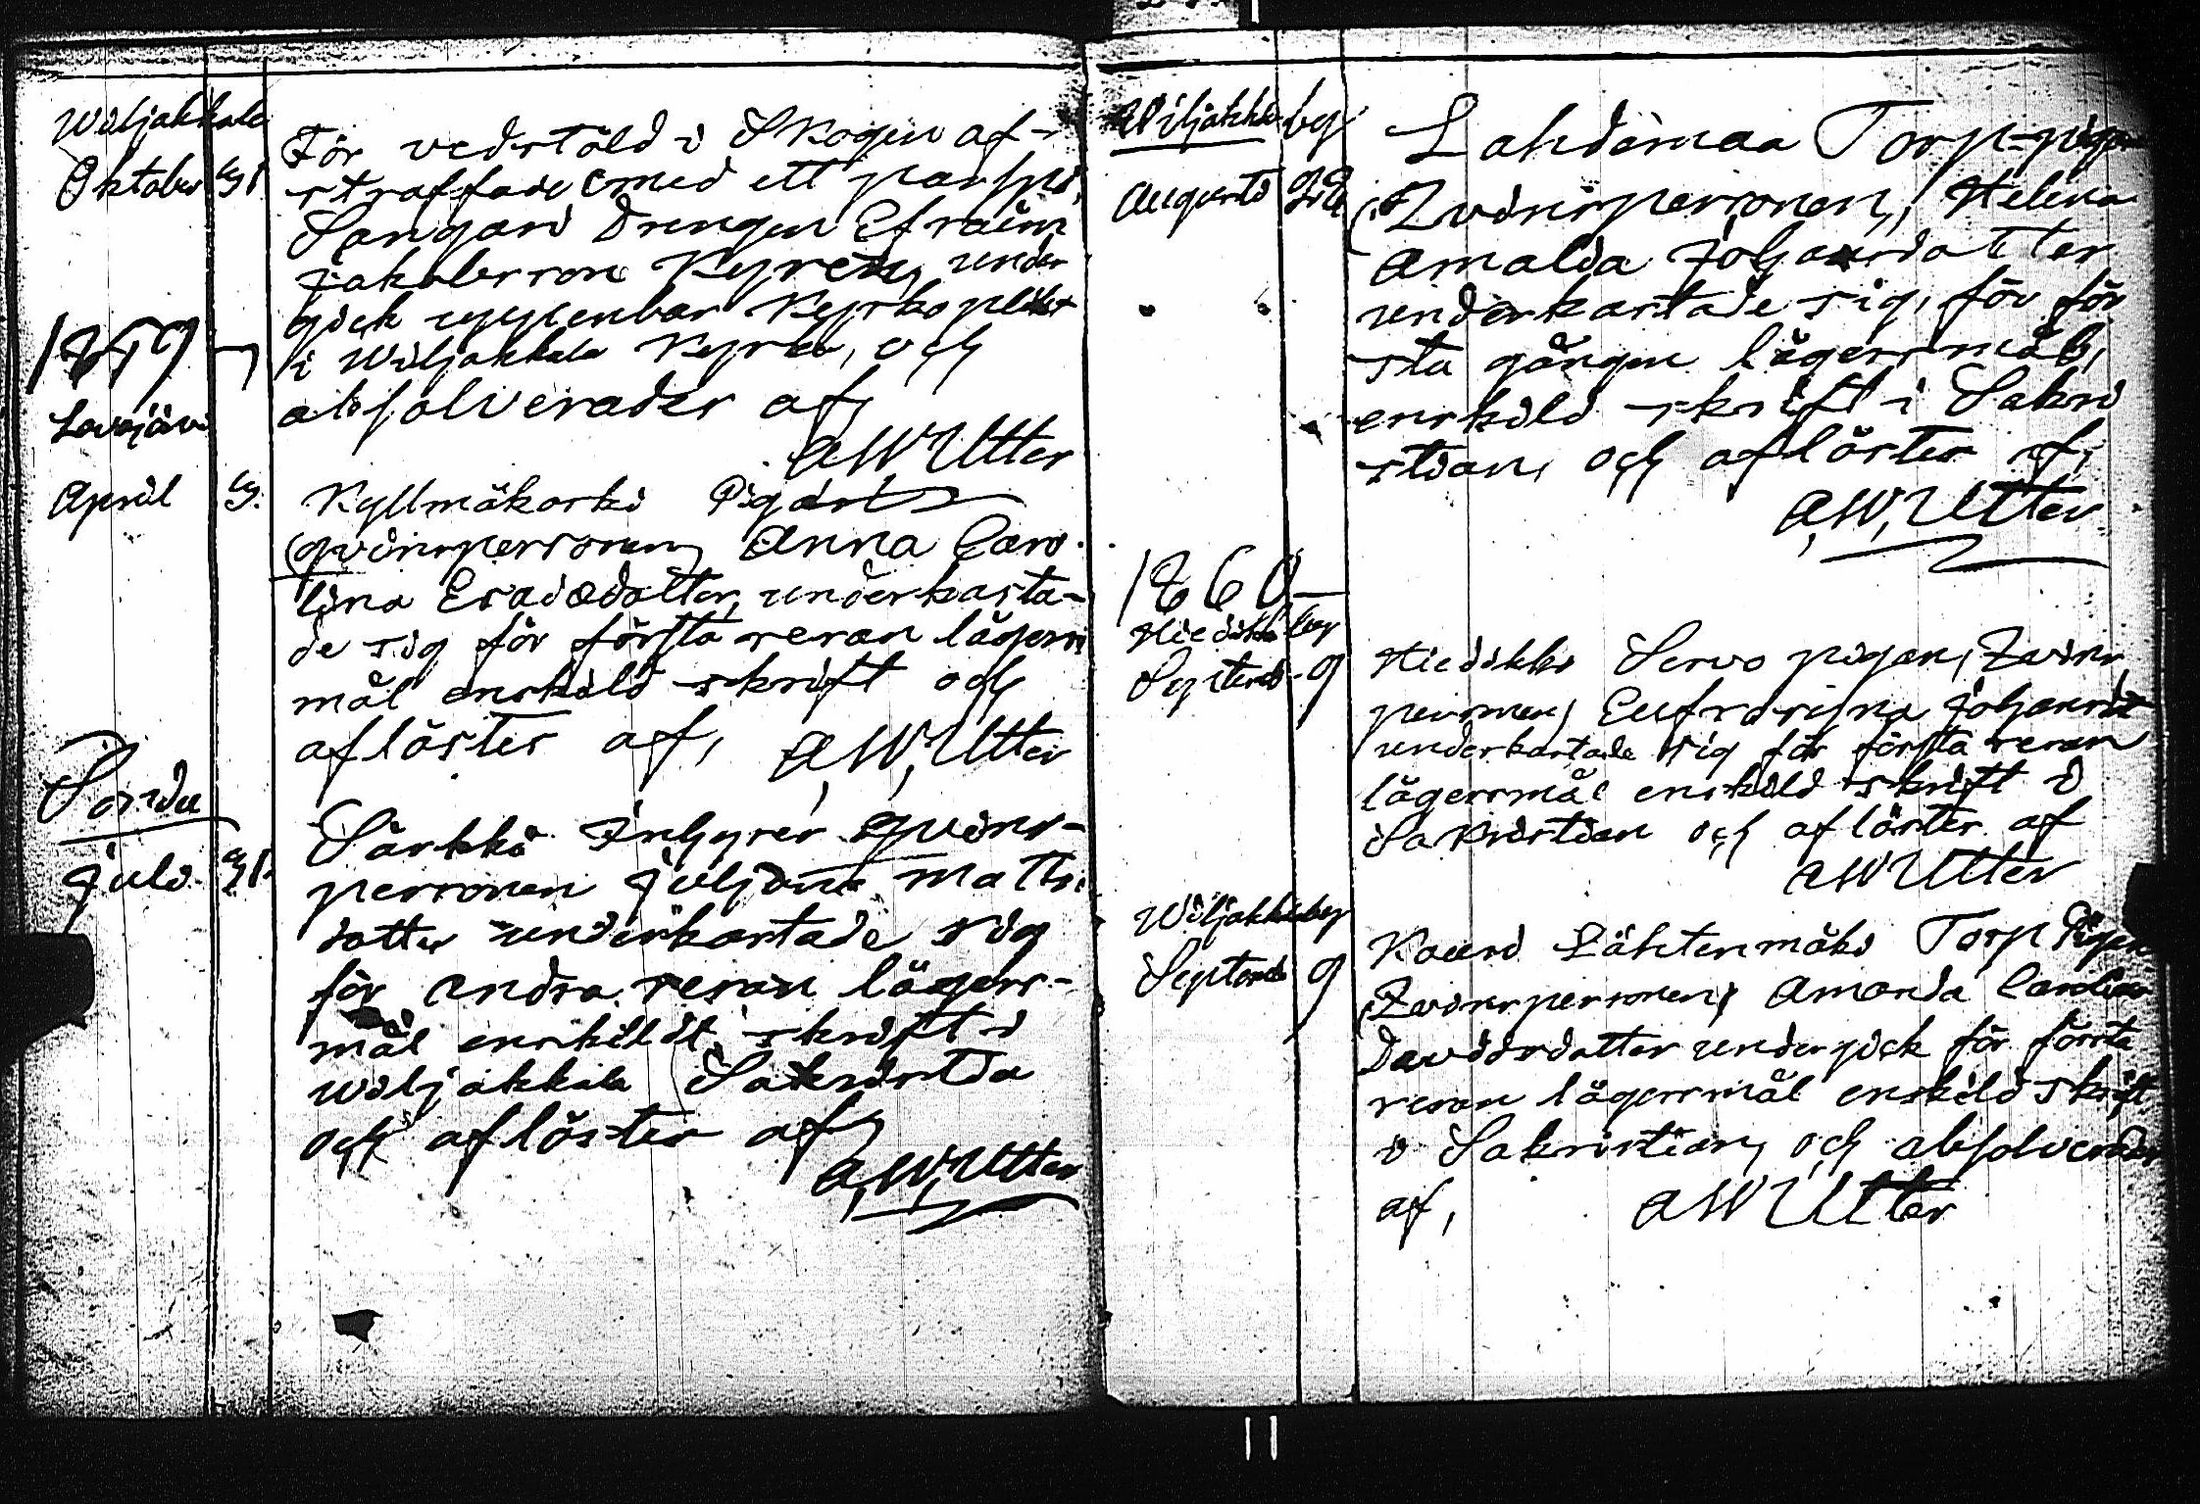 Wiljakkala
Oktober 31
För vedstöld i Skogen af-
straffade med ett par spö,
Sangari Drengen Efraim
Jakobsson Kyren, under
gick uppenbar Kyrkoplikt
i Wiljakkala Kyrka, och
absolverades af,
AWUtter
1859
Lavajärvi
April 3.
Kyllmäkoski Pigan
(qvinspersonen, Anna Caro-
lina Esaiædotter, underkasta-
de sig för första resan lägers
mål enskild skrift och
aflöstes af, A,W,Utter
Sondu
Juli 31.
Särkkä Inhyses qvins-
personen Juljana Matts
dotter underkastade sig
för andra resan lägers-
mål enskildt skrift i
Wiljakkala Sakristia
och aflöstes af
A,W,Utter
Wiljakkala by
Augusti
Lahdemaa Torp-pigan
(Qvinspersonen, Helena
Amalia Johansdotter
underkastade sig, för för
sta gången lägersmål,
enskild skrift i Sakri
stian, och aflöstes af,
A,W,Utter
1860
Hiedikko by
Septemb. 9
Hiedikko Servo pigan, Qvins
personen, Eufrosyna Johansdt
underkastade sig för första resan
lägersmål enskild skrift i
Sakristian och aflöstes af
AWUtter
Wiljakkala by
Septemb 9
Kauri Lähtenmäki Torp Pigan
(Qvinspersonen, Amanda Carolina
Davidsdotter undergick för första
resan lägersmål enskild skrift
i Sakristian, och absolverades
af, AWUtter